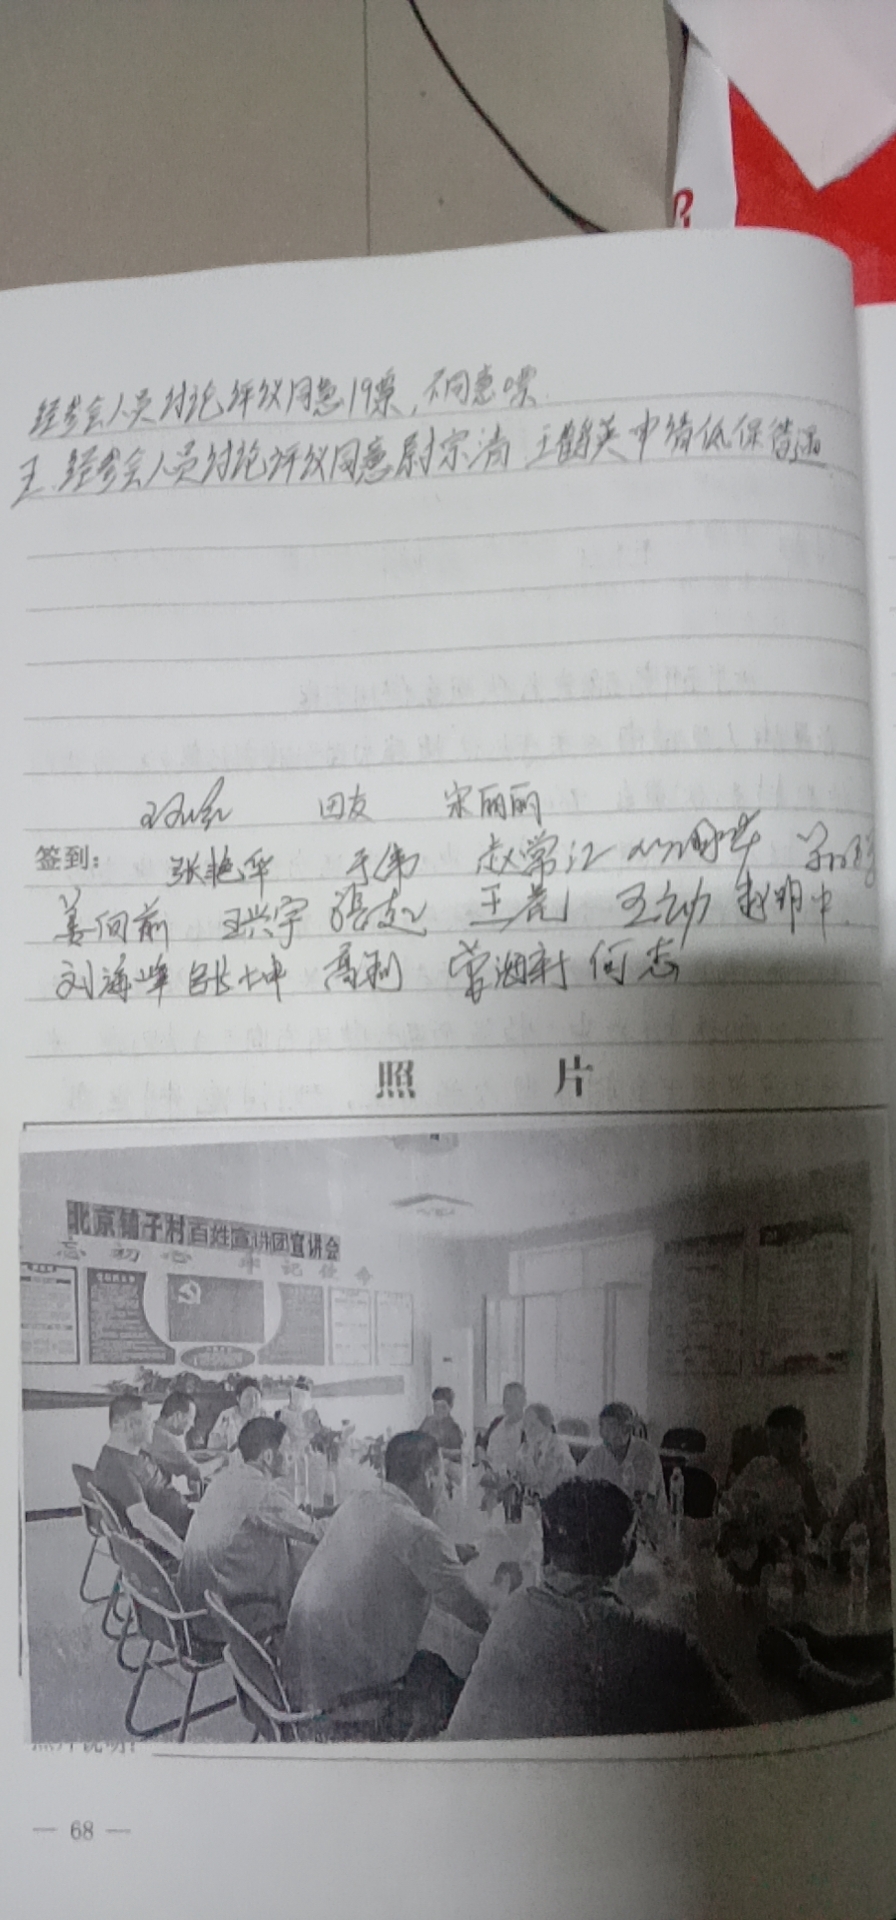 经参会人员讨论评议同意19票，不同意0票
王.经参会人员讨论评议同意尉宗清 王 英申请低保待遇
田友 宋丽丽
签到：
张艳华 于伟 赵常江
姜向前 王兴宇 张起 王亮 王立功 赵明中
刘海峰 高利 常海新 何志
照 片
北京铺子村百姓宣讲团宣讲会
忘初心 牢记使命
照片说明：
— 68 —